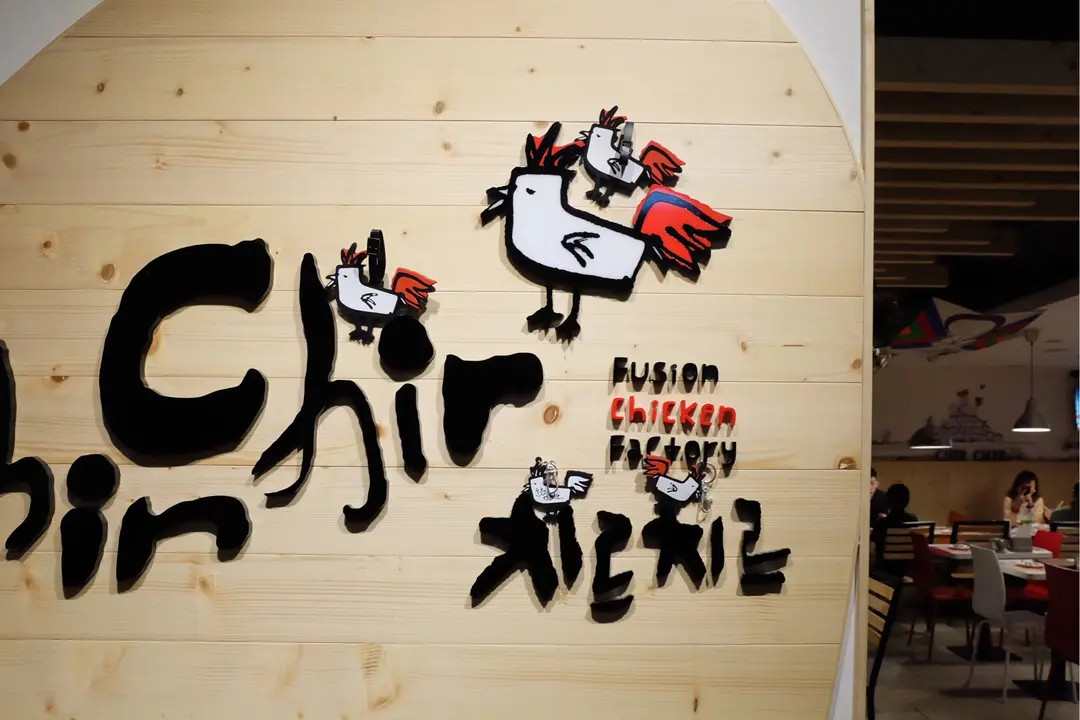 Chir
hir
Fusion
Chicken
Factory
치르치르
CHIR CHIR